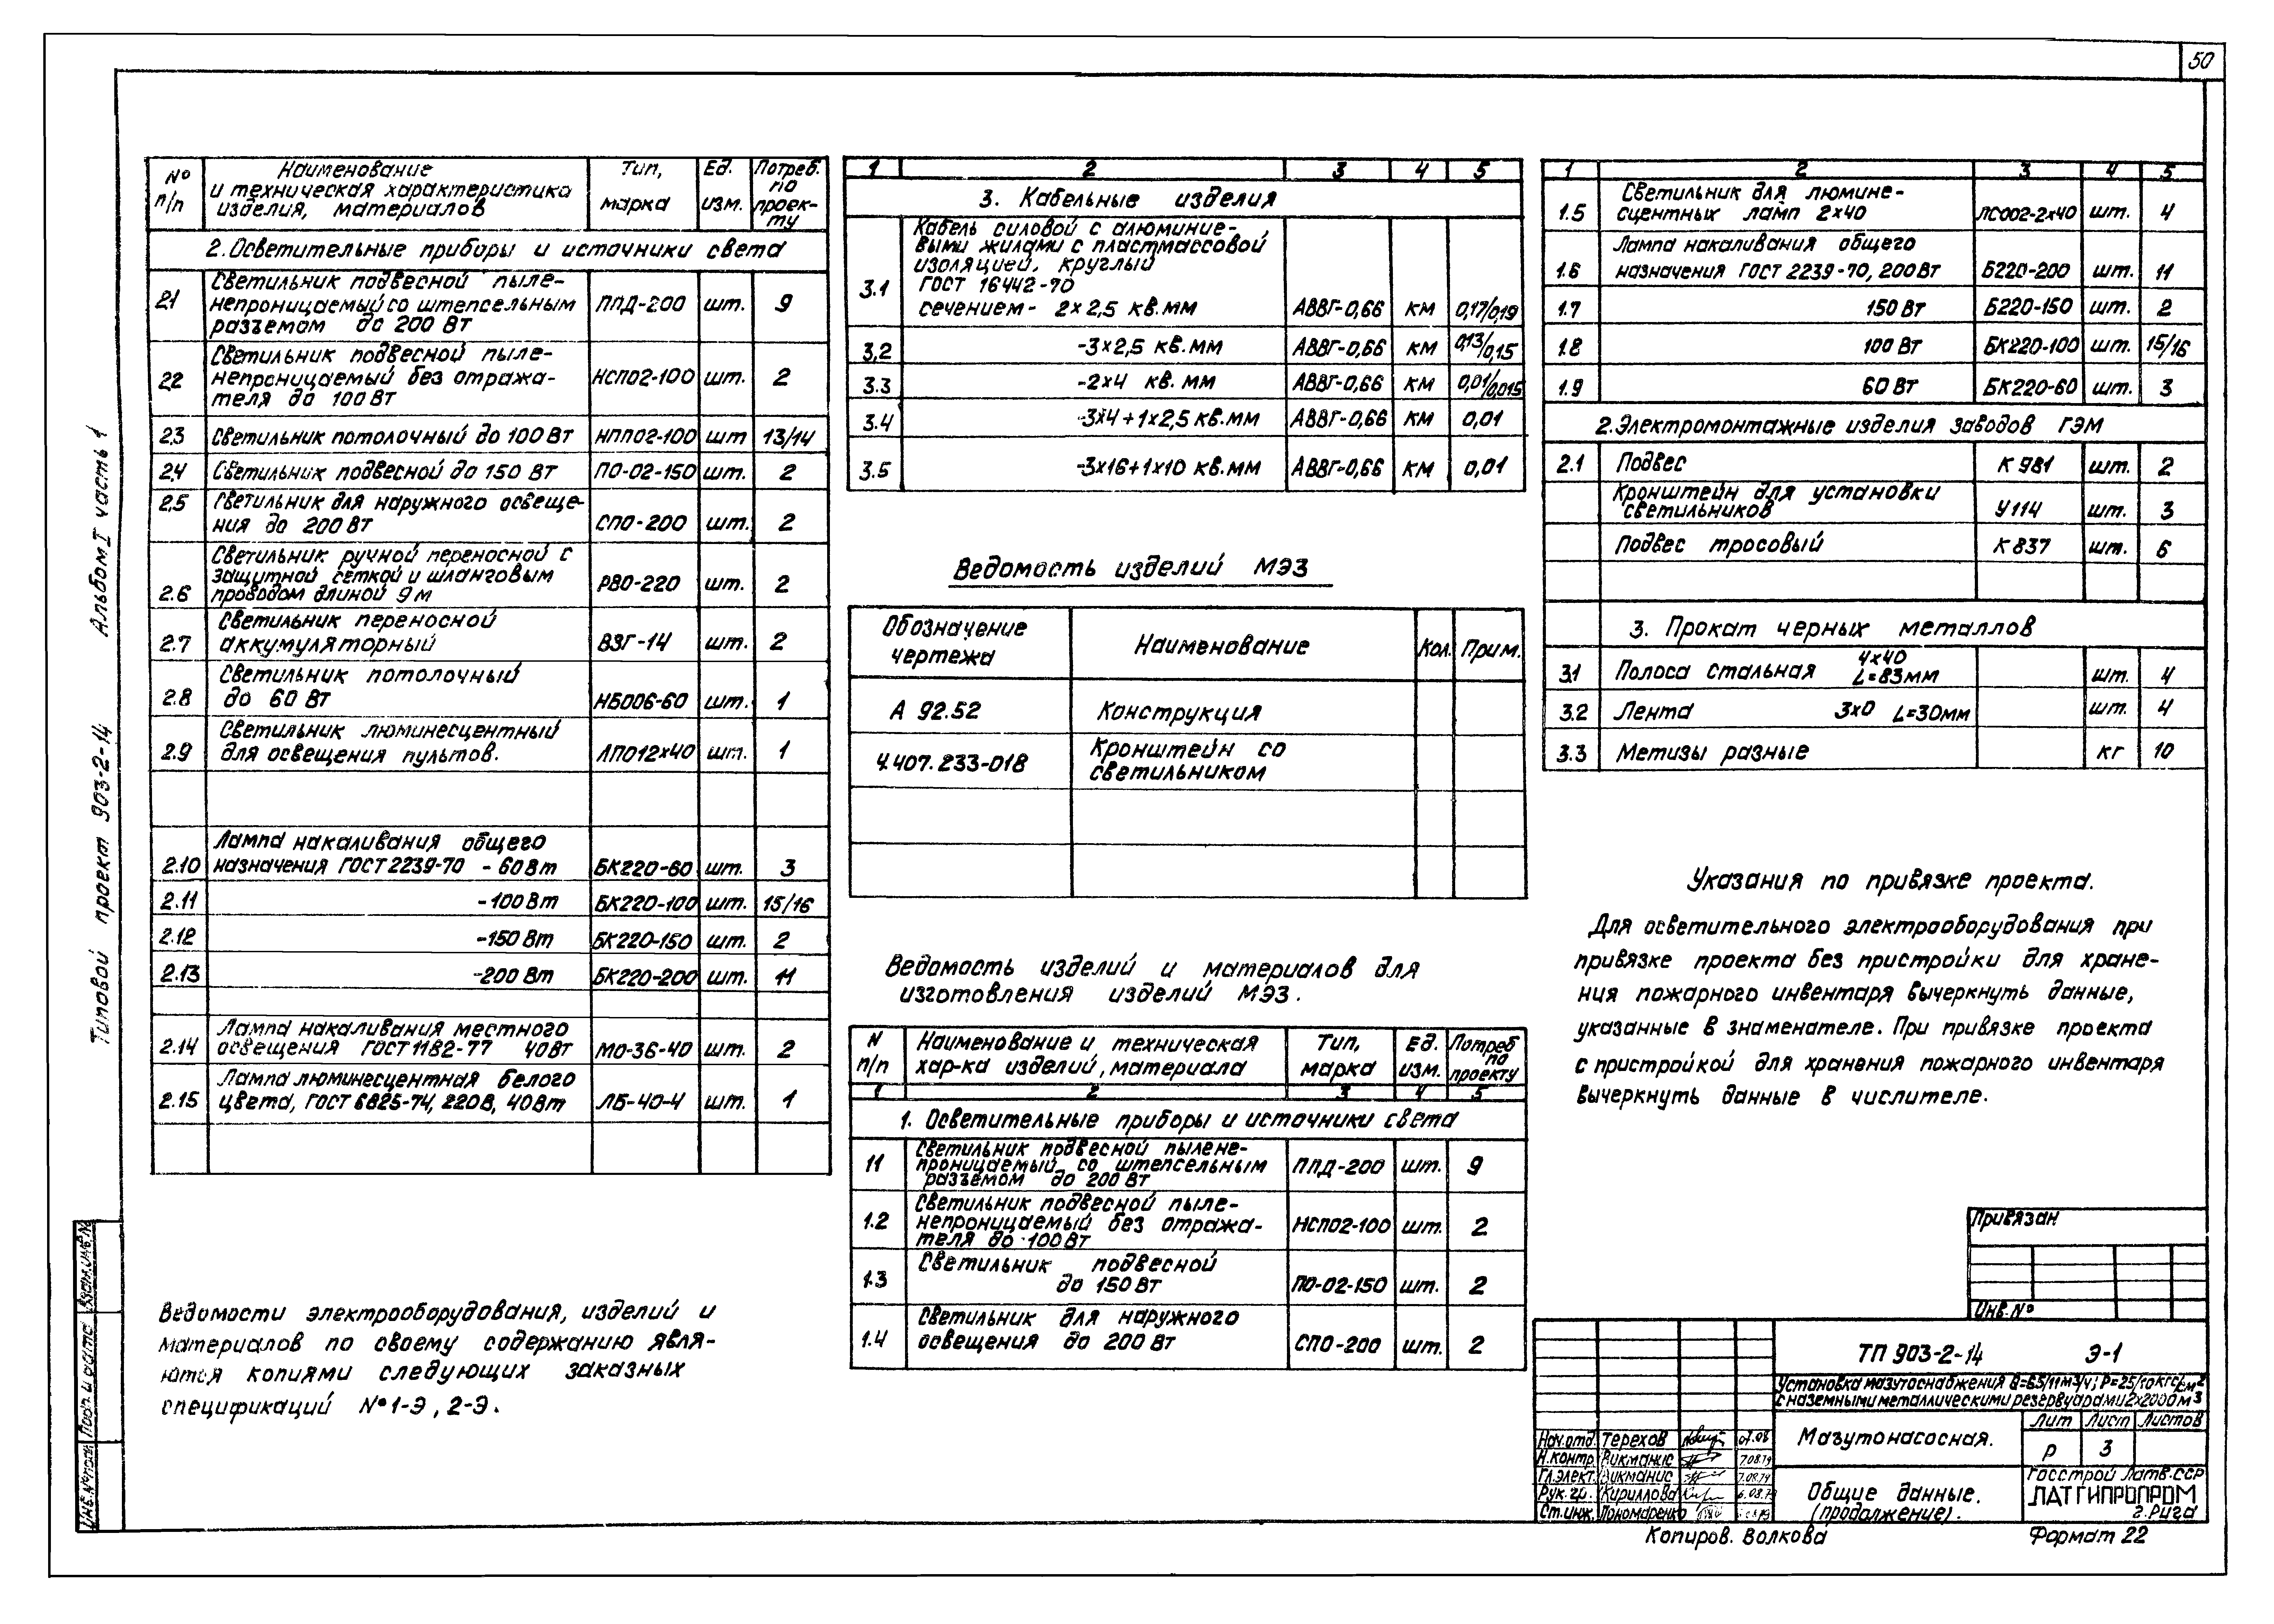 50
Типовой проект 903-2-14 Альбом I часть 1
№ п/п
Наименование и техническая характеристика изделия, материалов
Тип, марка
Ед. изм.
Потреб. по проекту
2. Осветительные приборы и источники света
2.1 Светильник подвесной пыле-
непроницаемый со штепсельным
разъемом до 200 Вт ППД-200 шт. 9
2.2 Светильник подвесной пыле-
непроницаемый без отража-
теля до 100 Вт НСП02-100 шт. 2
2.3 Светильник потолочный до 100 Вт НПП02-100 шт 13/14
2.4 Светильник подвесной до 150 Вт ПО-02-150 шт. 2
2.5 Светильник для наружного освеще-
ния до 200 Вт СПО-200 шт. 2
Светильник ручной переносной с
защитной сеткой и шланговым
2.6 проводом длиной 9 м РВО-220 шт. 2
Светильник переносной
2.7 аккумуляторный ВЗГ-14 шт. 2
Светильник потолочный
2.8 до 60 Вт НБ006-60 шт. 1
Светильник люминесцентный
2.9 для освещения пультов. ЛПО12х40 шт. 1
Лампа накаливания общего
2.10 назначения ГОСТ 2239-70 - 60 Вт БК220-60 шт. 3
2.11 -100 Вт БК220-100 шт. 15/16
2.12 -150 Вт БК220-150 шт. 2
2.13 -200 Вт БК220-200 шт. 11
Лампа накаливания местного
2.14 освещения ГОСТ 1182-77 40 Вт МО-36-40 шт. 2
Лампа люминесцентная белого
2.15 цвета, ГОСТ 6825-74, 220 В, 40 Вт ЛБ-40-4 шт. 1
Ведомости электрооборудования, изделий и
материалов по своему содержанию явля-
ются копиями следующих заказных
спецификаций № 1-Э, 2-Э.
1 2 3 4 5
3. Кабельные изделия
Кабель силовой с алюминие-
выми жилами с пластмассовой
изоляцией, круглый
3.1 ГОСТ 16442-70
сечением - 2х2,5 кв.мм АВВГ-0,66 км 0,17/0,19
3,2 -3х2,5 кв.мм АВВГ-0,66 км 0,13/0,15
3.3 -2х4 кв.мм АВВГ-0,66 км 0,01/0,015
3.4 -3х4+1х2,5 кв.мм АВВГ-0,66 км 0,01
3.5 -3х16+1х10 кв.мм АВВГ-0,66 км 0,01
Ведомость изделий МЭЗ
Обозначение чертежа Наименование Кол. Прим.
А 92.52 Конструкция
4.407.233-018 Кронштейн со
светильником
Ведомость изделий и материалов для
изготовления изделий МЭЗ.
N п/п
Наименование и техническая хар-ка изделий, материала
Тип, марка
Ед. изм.
Потреб по проекту
1 2 3 4 5
1. Осветительные приборы и источники света
1.1 Светильник подвесной пылене-
проницаемый со штепсельным
разъемом до 200 Вт ППД-200 шт. 9
1.2 Светильник подвесной пыле-
непроницаемый без отража-
теля до 100 Вт НСП02-100 шт. 2
1.3 Светильник подвесной
до 150 Вт ПО-02-150 шт. 2
1.4 Светильник для наружного
освещения до 200 Вт СПО-200 шт. 2
1 2 3 4 5
1.5 Светильник для люмине-
сцентных ламп 2х40 ЛСО02-2х40 шт. 4
Лампа накаливания общего
1.6 назначения ГОСТ 2239-70, 200 Вт Б220-200 шт. 11
1.7 150 Вт Б220-150 шт. 2
1.8 100 Вт БК220-100 шт. 15/16
1.9 60 Вт БК220-60 шт. 3
2. Электромонтажные изделия заводов ГЭМ
2.1 Подвес К 981 шт. 2
Кронштейн для установки
светильников У114 шт. 3
Подвес тросовый К 837 шт. 6
3. Прокат черных металлов
3.1 Полоса стальная 4х40
L=83мм шт. 4
3.2 Лента 3х0 L=30мм шт. 4
3.3 Метизы разные кг 10
Указания по привязке проекта.
Для осветительного электрооборудования при
привязке проекта без пристройки для хране-
ния пожарного инвентаря вычеркнуть данные,
указанные в знаменателе. При привязке проекта
с пристройкой для хранения пожарного инвентаря
вычеркнуть данные в числителе.
Привязан
Инв. №
ТП 903-2-14 Э-1
Установка мазутоснабжения Q=6.5/11 м3/ч; Р=25/10 кгс/см2
с наземными металлическими резервуарами 2х2000 м3
Мазутонасосная.
Лит Лист Листов
Р 3
Общие данные.
(продолжение).
Госстрой Латв.ССР
ЛАТГИПРОПРОМ
г. Рига
Нач.отд. Терехов 07.08
Н.контр. Викманис 7.08.79
Гл.элект. Викманис 7.08.79
Рук. гр. Кириллова 6.08.79
Ст.инж. Пономаренко
Копиров. Волкова Формат 22
Взам.инв.№
Подп. и дата
Инв.№ подл.